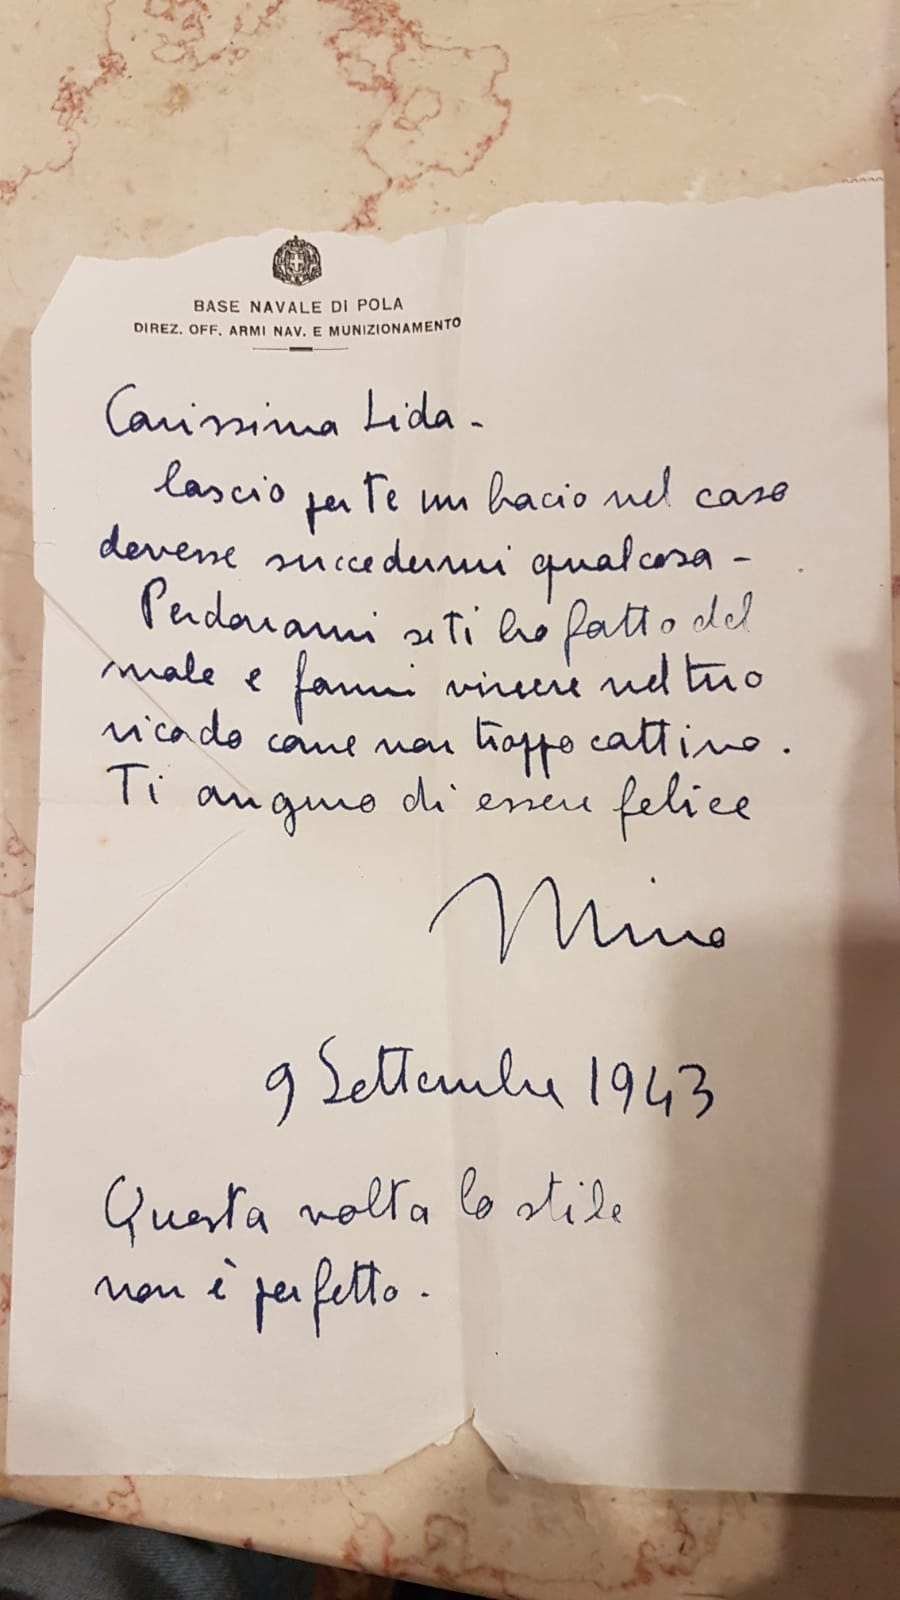 BASE NAVALE DI POLA
DIREZ. OFF. ARMI NAV. E MUNIZIONAMENTO
Carissima Lida -
lascio per te un bacio nel caso
dovesse succedermi qualcosa -
Perdonami se ti ho fatto del
male e fammi vivere nel tuo
ricordo come non troppo cattivo.
Ti auguro di essere felice
Mino
9 Settembre 1943
Questa volta lo stile
non è perfetto.